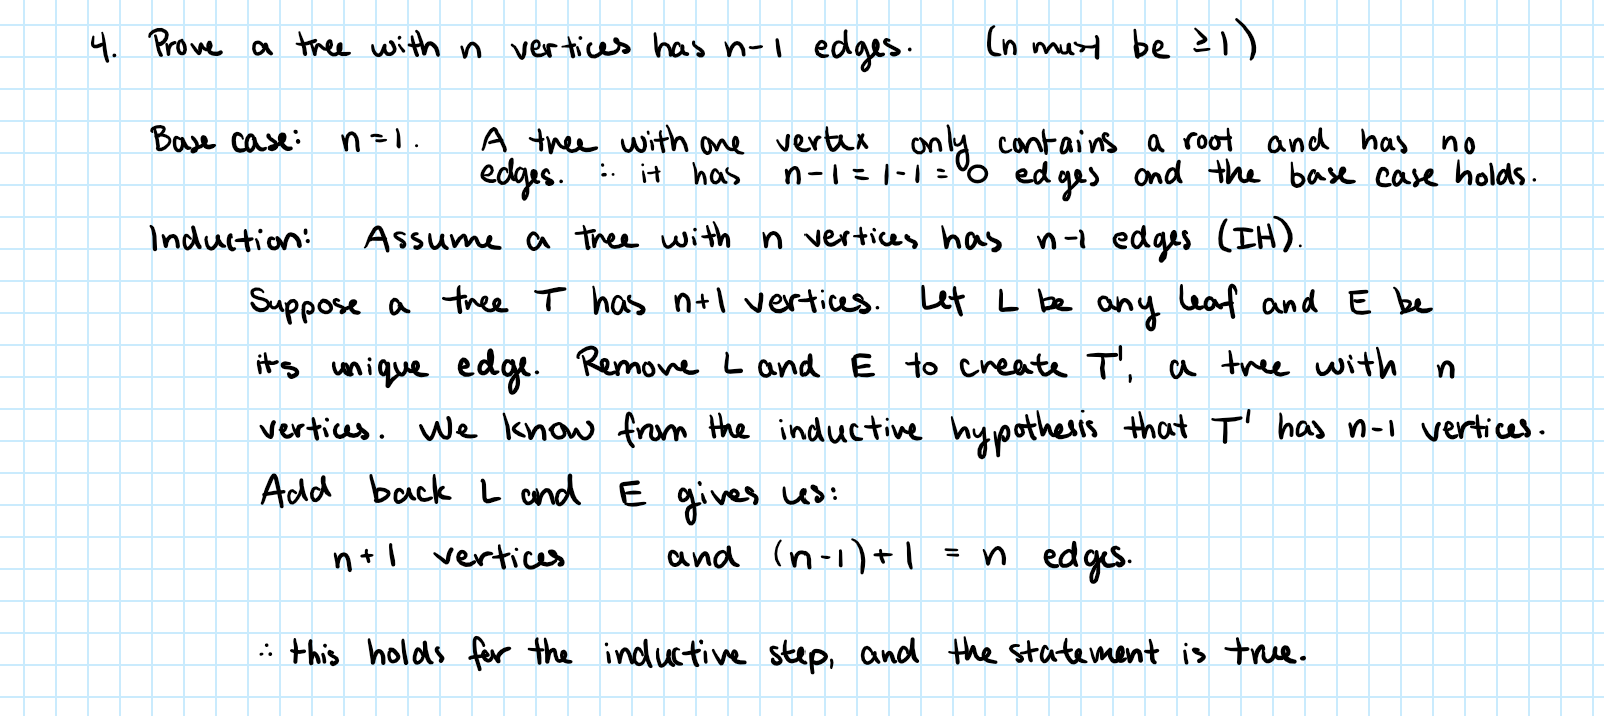 4. Prove a tree with n vertices has n-1 edges. (n must be ≥1)
Base case: n=1. A tree with one vertex only contains a root and has no
edges. ∴ it has n-1=1-1=0 edges and the base case holds.
Induction: Assume a tree with n vertices has n-1 edges (IH).
Suppose a tree T has n+1 vertices. Let L be any leaf and E be
its unique edge. Remove L and E to create T', a tree with n
vertices. We know from the inductive hypothesis that T' has n-1 vertices.
Add back L and E gives us:
n+1 vertices and (n-1)+1 = n edges.
∴ this holds for the inductive step, and the statement is true.